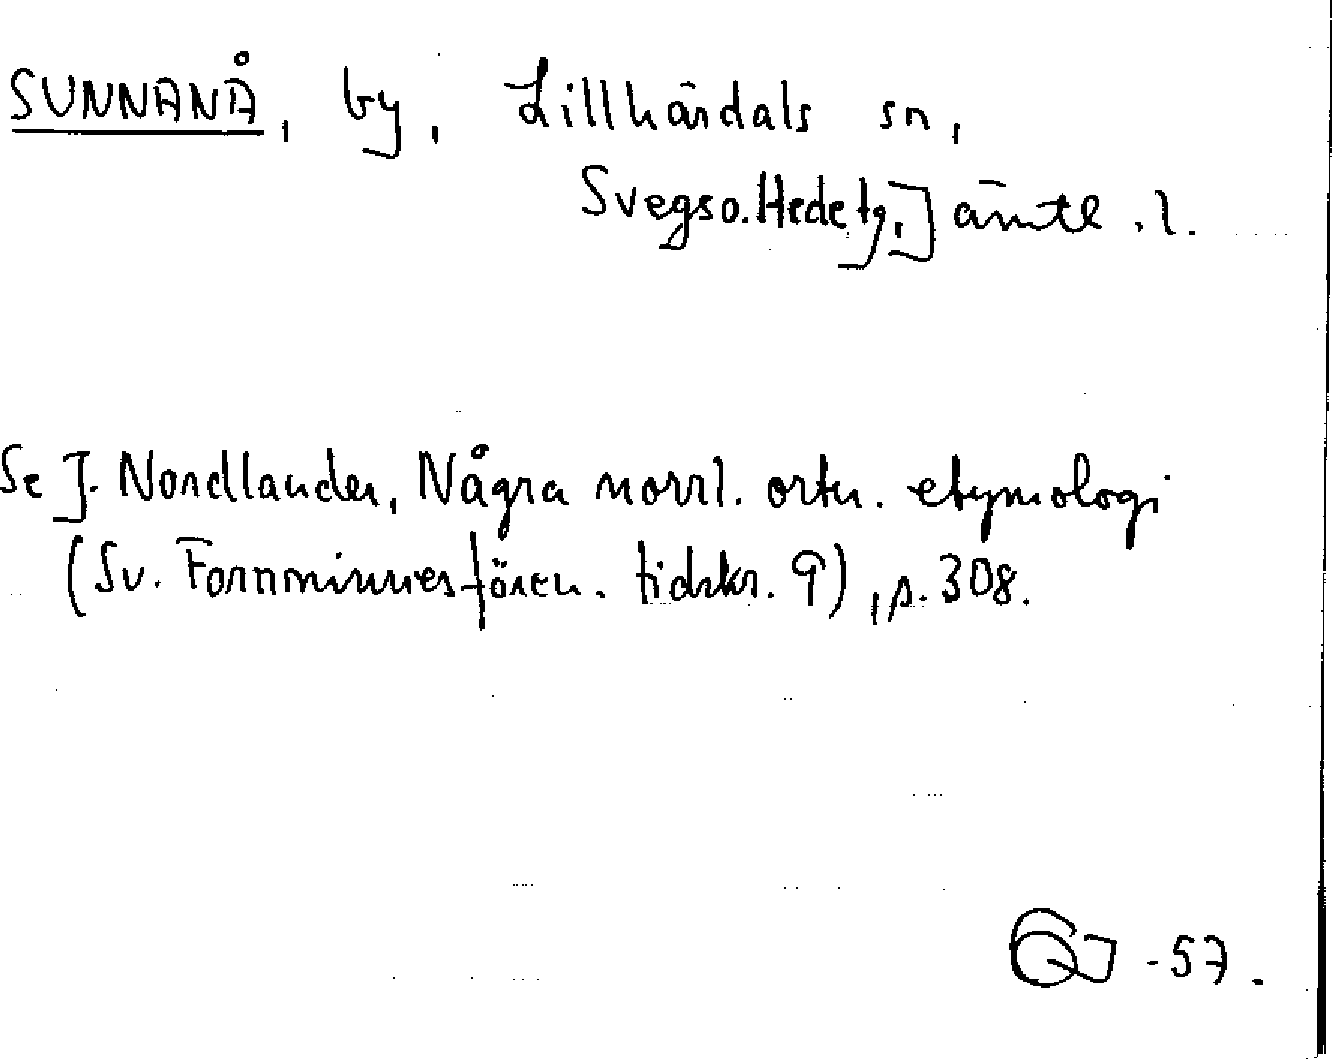 SUNNANÅ, by, Lillhärdals sn,
Svegs o. Hede tg, Jämtl. l.
Se J. Nordlander, Några norrl. ortn. etymologi
(Sv. Fornminnesfören. tidskr. 9), p. 308.
-57.